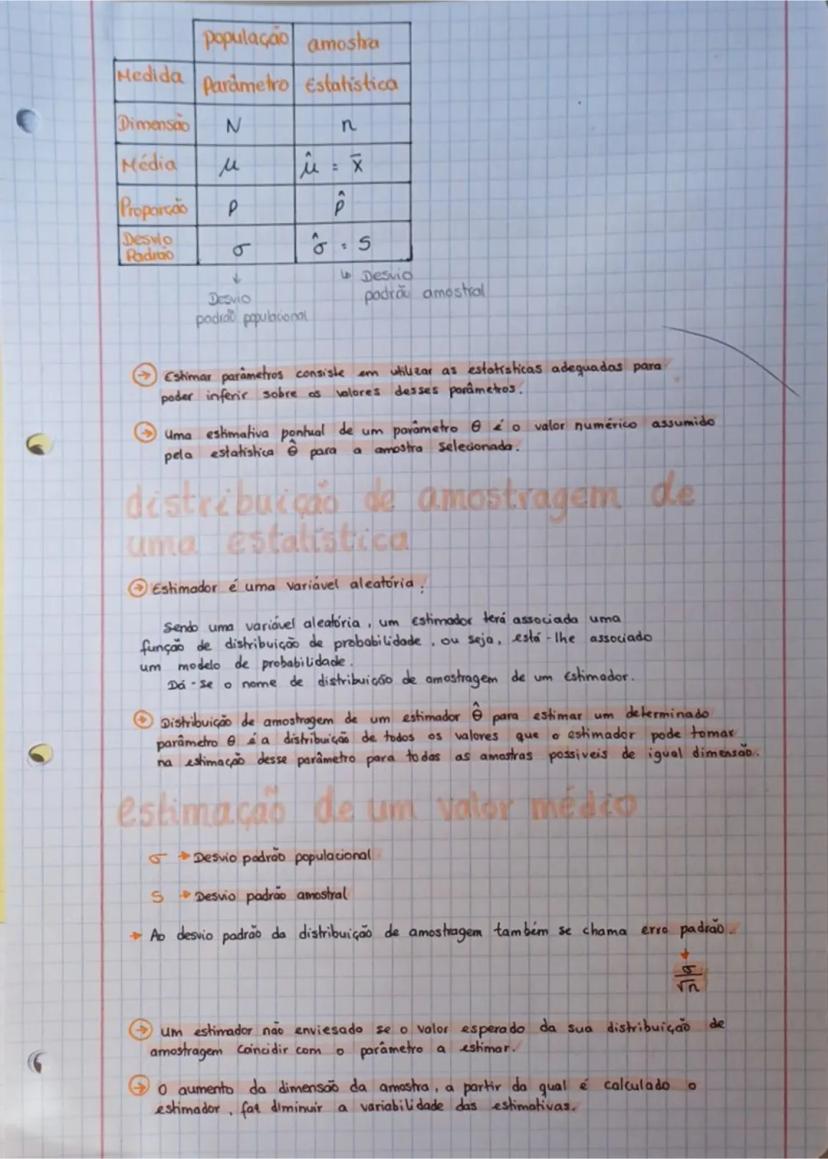 população amostra
Medida Parâmetro Estatística
Dimensão N n
Média μ μ̂ = x̄
Proporção p p̂
Desvio
Padrão σ σ̂ = s
↓ ↳ Desvio
Desvio padrão amostral
padrão populacional
→ Estimar parâmetros consiste em utilizar as estatísticas adequadas para
poder inferir sobre os valores desses parâmetros.
→ Uma estimativa pontual de um parâmetro θ é o valor numérico assumido
pela estatística θ̂ para a amostra selecionada.
distribuição de amostragem de
uma estatística
→ Estimador é uma variável aleatória:
Sendo uma variável aleatória, um estimador terá associada uma
função de distribuição de probabilidade, ou seja, está-lhe associado
um modelo de probabilidade.
Dá-se o nome de distribuição de amostragem de um estimador.
→ Distribuição de amostragem de um estimador θ̂ para estimar um determinado
parâmetro θ é a distribuição de todos os valores que o estimador pode tomar
na estimação desse parâmetro para todas as amostras possiveis de igual dimensão.
estimação de um valor médio
σ → Desvio padrão populacional
S → Desvio padrão amostral
→ Ao desvio padrão da distribuição de amostragem também se chama erro padrão.
↓
σ/√n
→ Um estimador não enviesado se o valor esperado da sua distribuição de
amostragem coincidir com o parâmetro a estimar.
→ O aumento da dimensão da amostra, a partir da qual é calculado o
estimador, faz diminuir a variabilidade das estimativas.